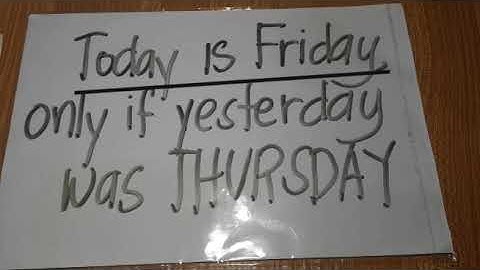 Today is Friday,
only if yesterday
was THURSDAY